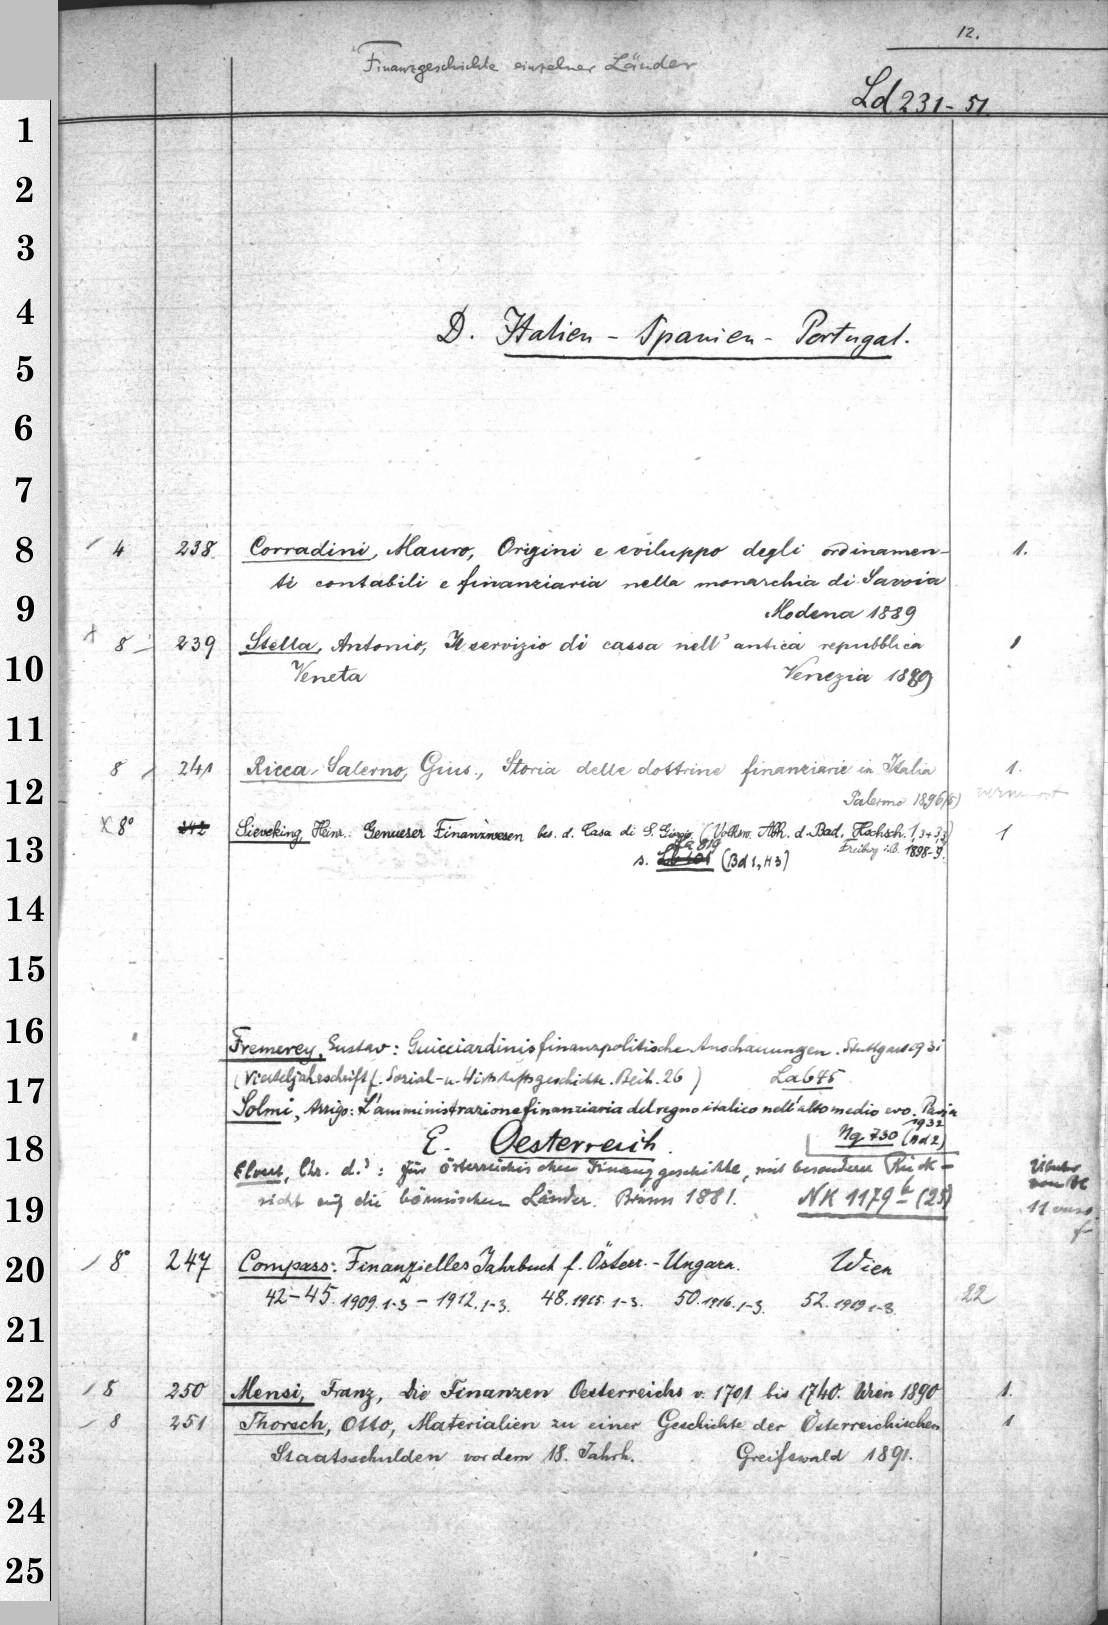 12.
Finanzgeschichte einzelner Länder
Ld 231-51
1
2
3
4
D. Italien - Spanien - Portugal.
5
6
7
8
4 238 Corradini, Mauro, Origini e sviluppo degli ordinamen- 1.
ti contabili e finanziaria nella monarchia di Savoia
9
Modena 1889
8 239 Stella, Antonio, Il servizio di cassa nell' antica repubblica 1
10
Veneta Venezia 1889)
11
8 241 Ricca-Salerno, Gius., Storia delle dottrine finanziarie in Italia 1.
12
Palermo 1896
X 8° 242 Sieveking, Heinr.: Genueser Finanzwesen bes. d. Casa di S. Giorgio (Volksw. Abh. d. Bad. Hochsch. 1,3+3,3) 1
Freiburg i.B. 1898-9.
13
s. (Bd 1, H 3)
14
15
16
Fremerey, Gustav: Guicciardinis finanzpolitische Anschauungen. Stuttgart 1931
(Vierteljahrschrift f. Sozial- u. Wirtschaftsgeschichte. Beih. 26) La 645
17
Solmi, Arrigo: L'amministrazione finanziaria del regno italico nell' alto medio evo. Pavia
1932
18
E. Oesterreich. Ng. 730 (Bd 2)
Elvert, Chr. d.': Zur österreichischen Finanzgeschichte, mit besonderer Rück-
sicht auf die böhmischen Länder. Brünn 1881. NK 1179 b (25)
19
20
8° 247 Compass: Finanzielles Jahrbuch f. Österr.-Ungarn. Wien
42-45. 1909. 1-3 - 1912. 1-3. 48. 1915. 1-3. 50. 1916. 1-3. 52. 1919 1-3. 22
21
22
8 250 Mensi, Franz, Die Finanzen Oesterreichs v. 1701 bis 1740. Wien 1890 1.
8 251 Thorsch, Otto, Materialien zu einer Geschichte der Österreichischen 1
23
Staatsschulden vor dem 18. Jahrh. Greifswald 1891.
24
25